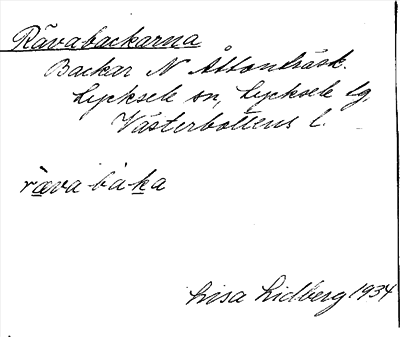 Rävabackarna
Backar N Åttonträsk.
Lycksele sn, Lycksele lg.
Västerbottens l.
räva baka
Lisa Lidberg 1934